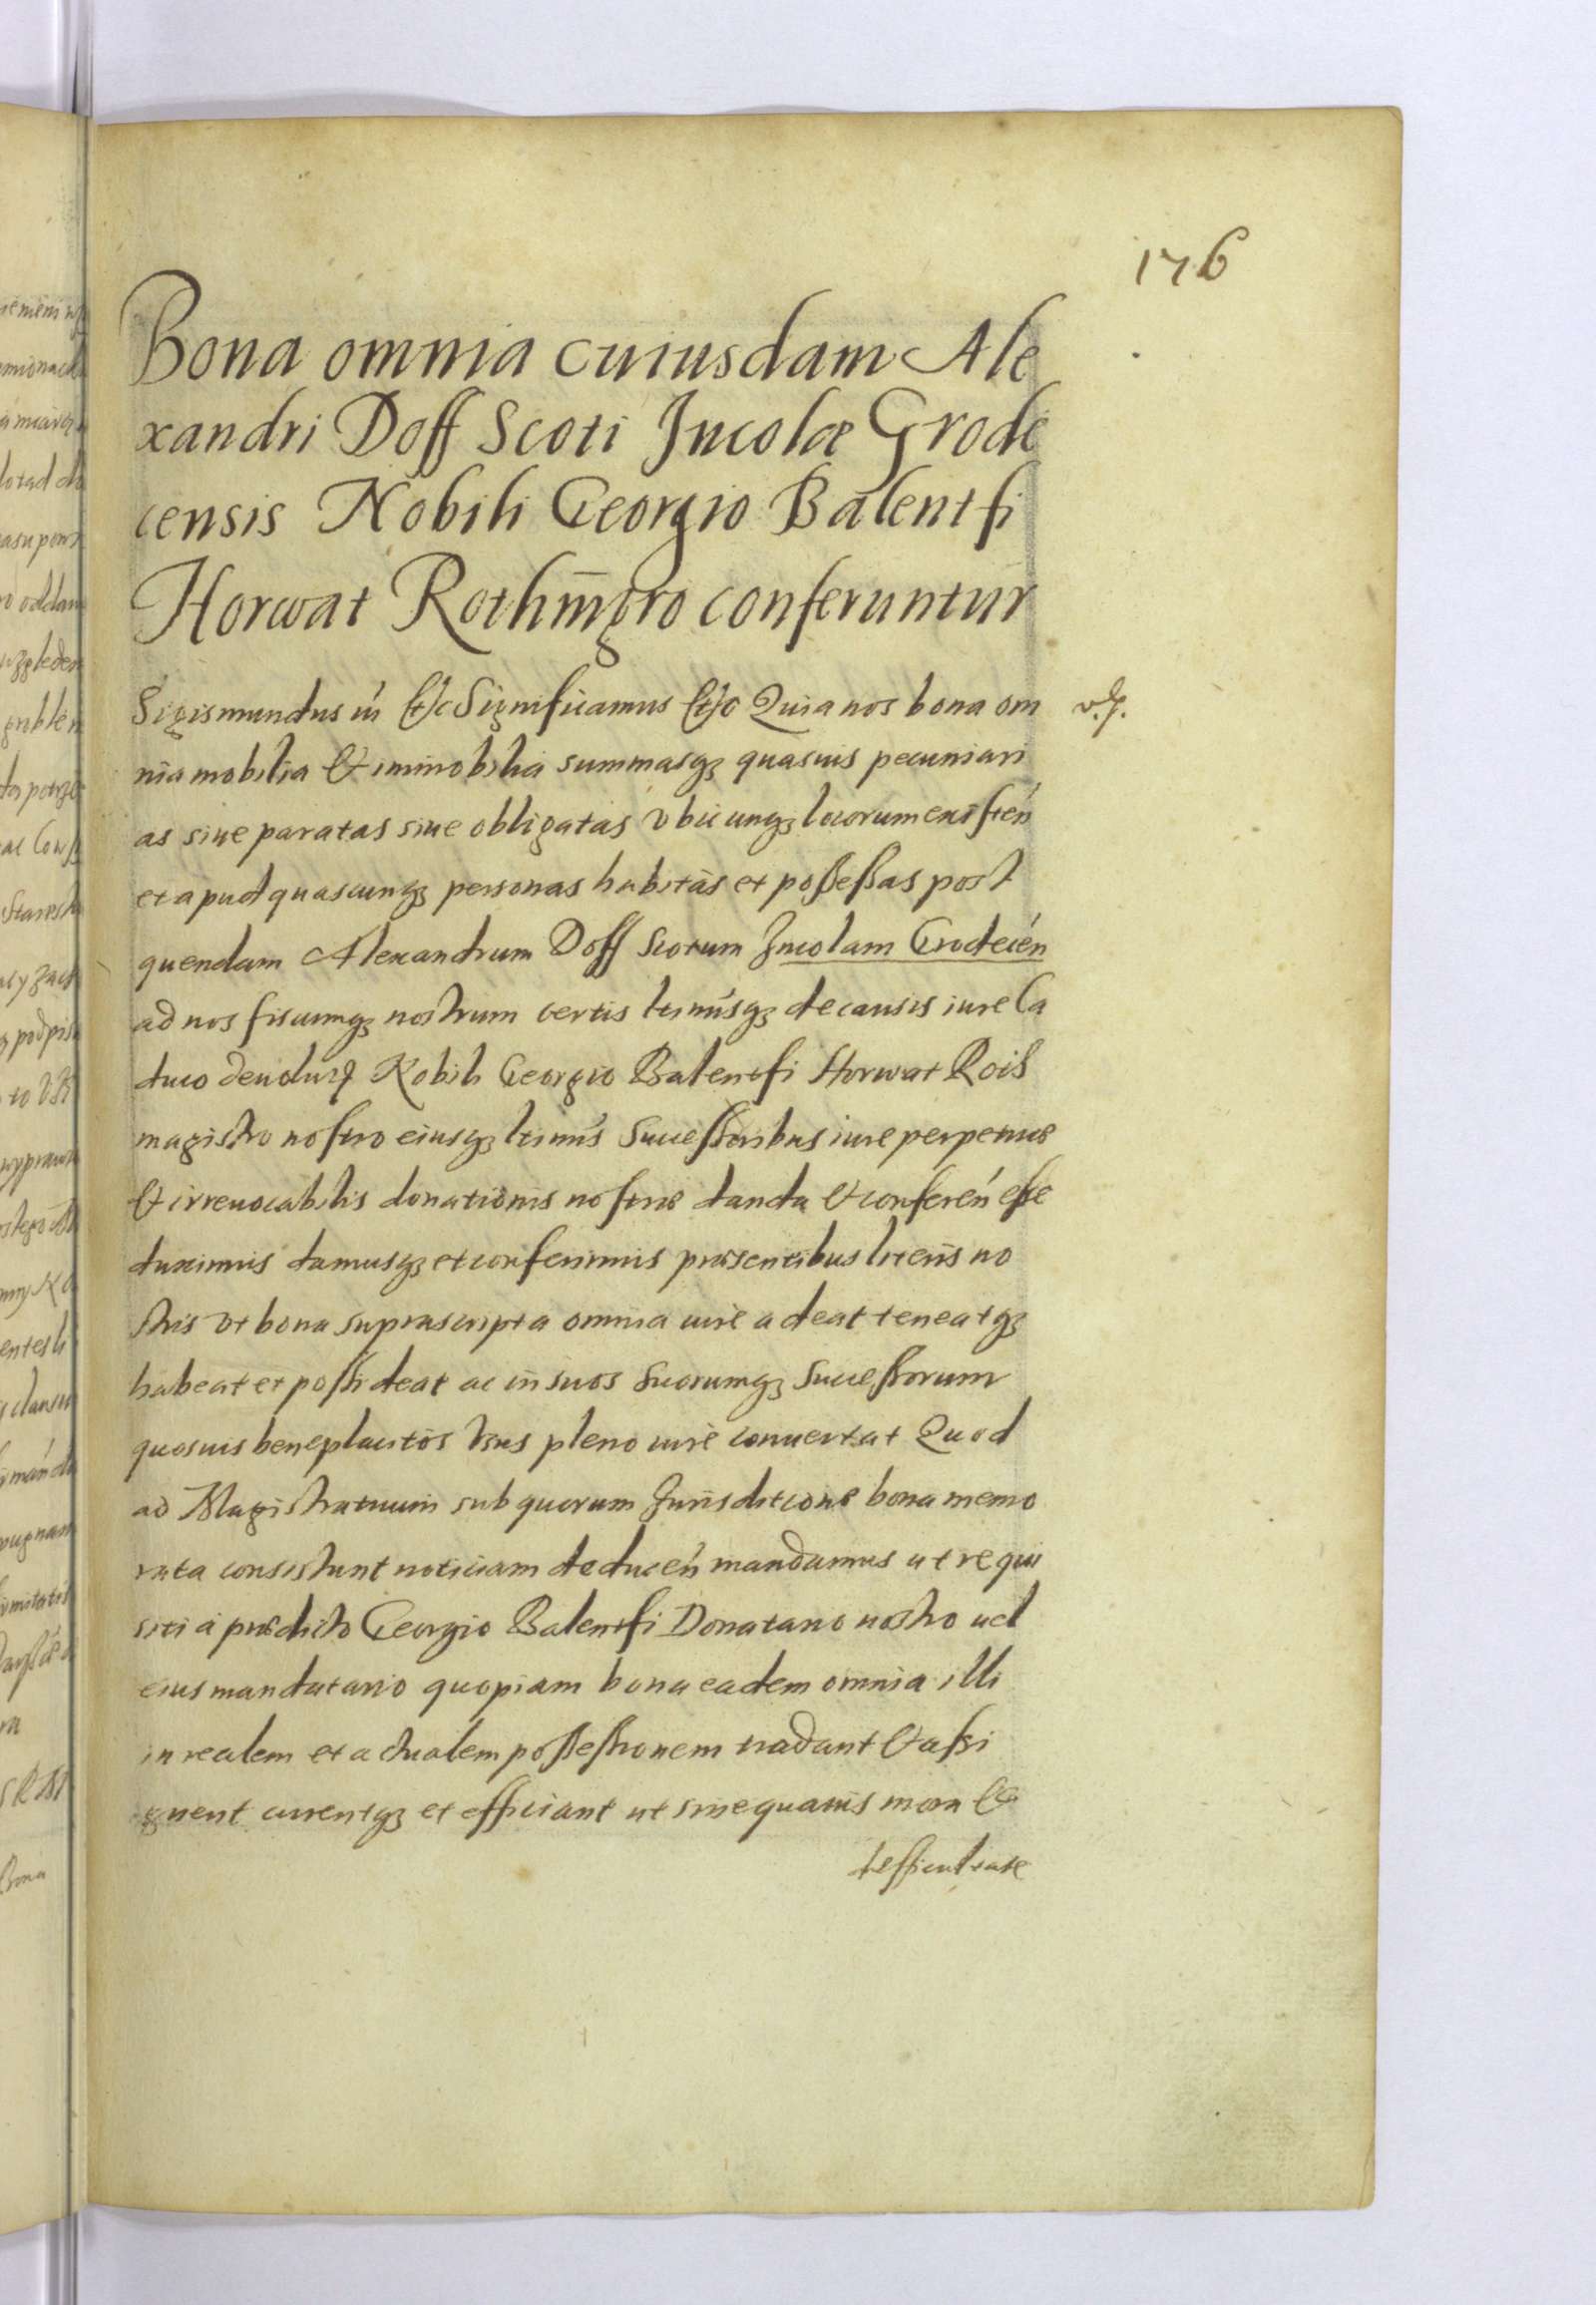 176
Bona omnia cuiusdam Ale
xandri Doff Scoti Incolæ Grode
censis Nobili Georgio Balentfi
Horwat Rothm̄gro conferuntur
Sigismundus iii etc Significamus etc Quia nos bona om
nia mobilia & immobilia summasq3 quasuis pecuniari
as siue paratas siue obligatas vbicunq3 locorum existeń
et apud quascunq3 personas habitas et possessas post
quendam Alexandrum Doff Scotum Incolam Grodeceń
ad nos fiscumq3 nostrum certis ltimisq3 de causis iure Ca
duco
Nobili Georgio Balentfi Horwat Roth
magistro nostro eiusq3 ltimis Successoribus iure perpetuæ
& irreuocabilis donationis nostræ danda & confereń esse
duximus damusq3 et conferimus præsentibus literis no
stris vt bona suprascripta omnia iure adeat teneatq3
habeat et possideat ac in suos Suorumq3 Successorum
quosuis beneplacitos Vsus pleno iure conuertat Quod
ad Magistratuum sub quorum Jurisditione bona memo
rata consistunt noticiam deduceń mandamus ut requi
siti a prædicto Georgio Balentfi Donatario nostro uel
eius mandatario quopiam bona eadem omnia illi
in realem et actualem possessionem tradant & assi
gnent curentq3 et efficiant ut sine quauis mora &
difficultate